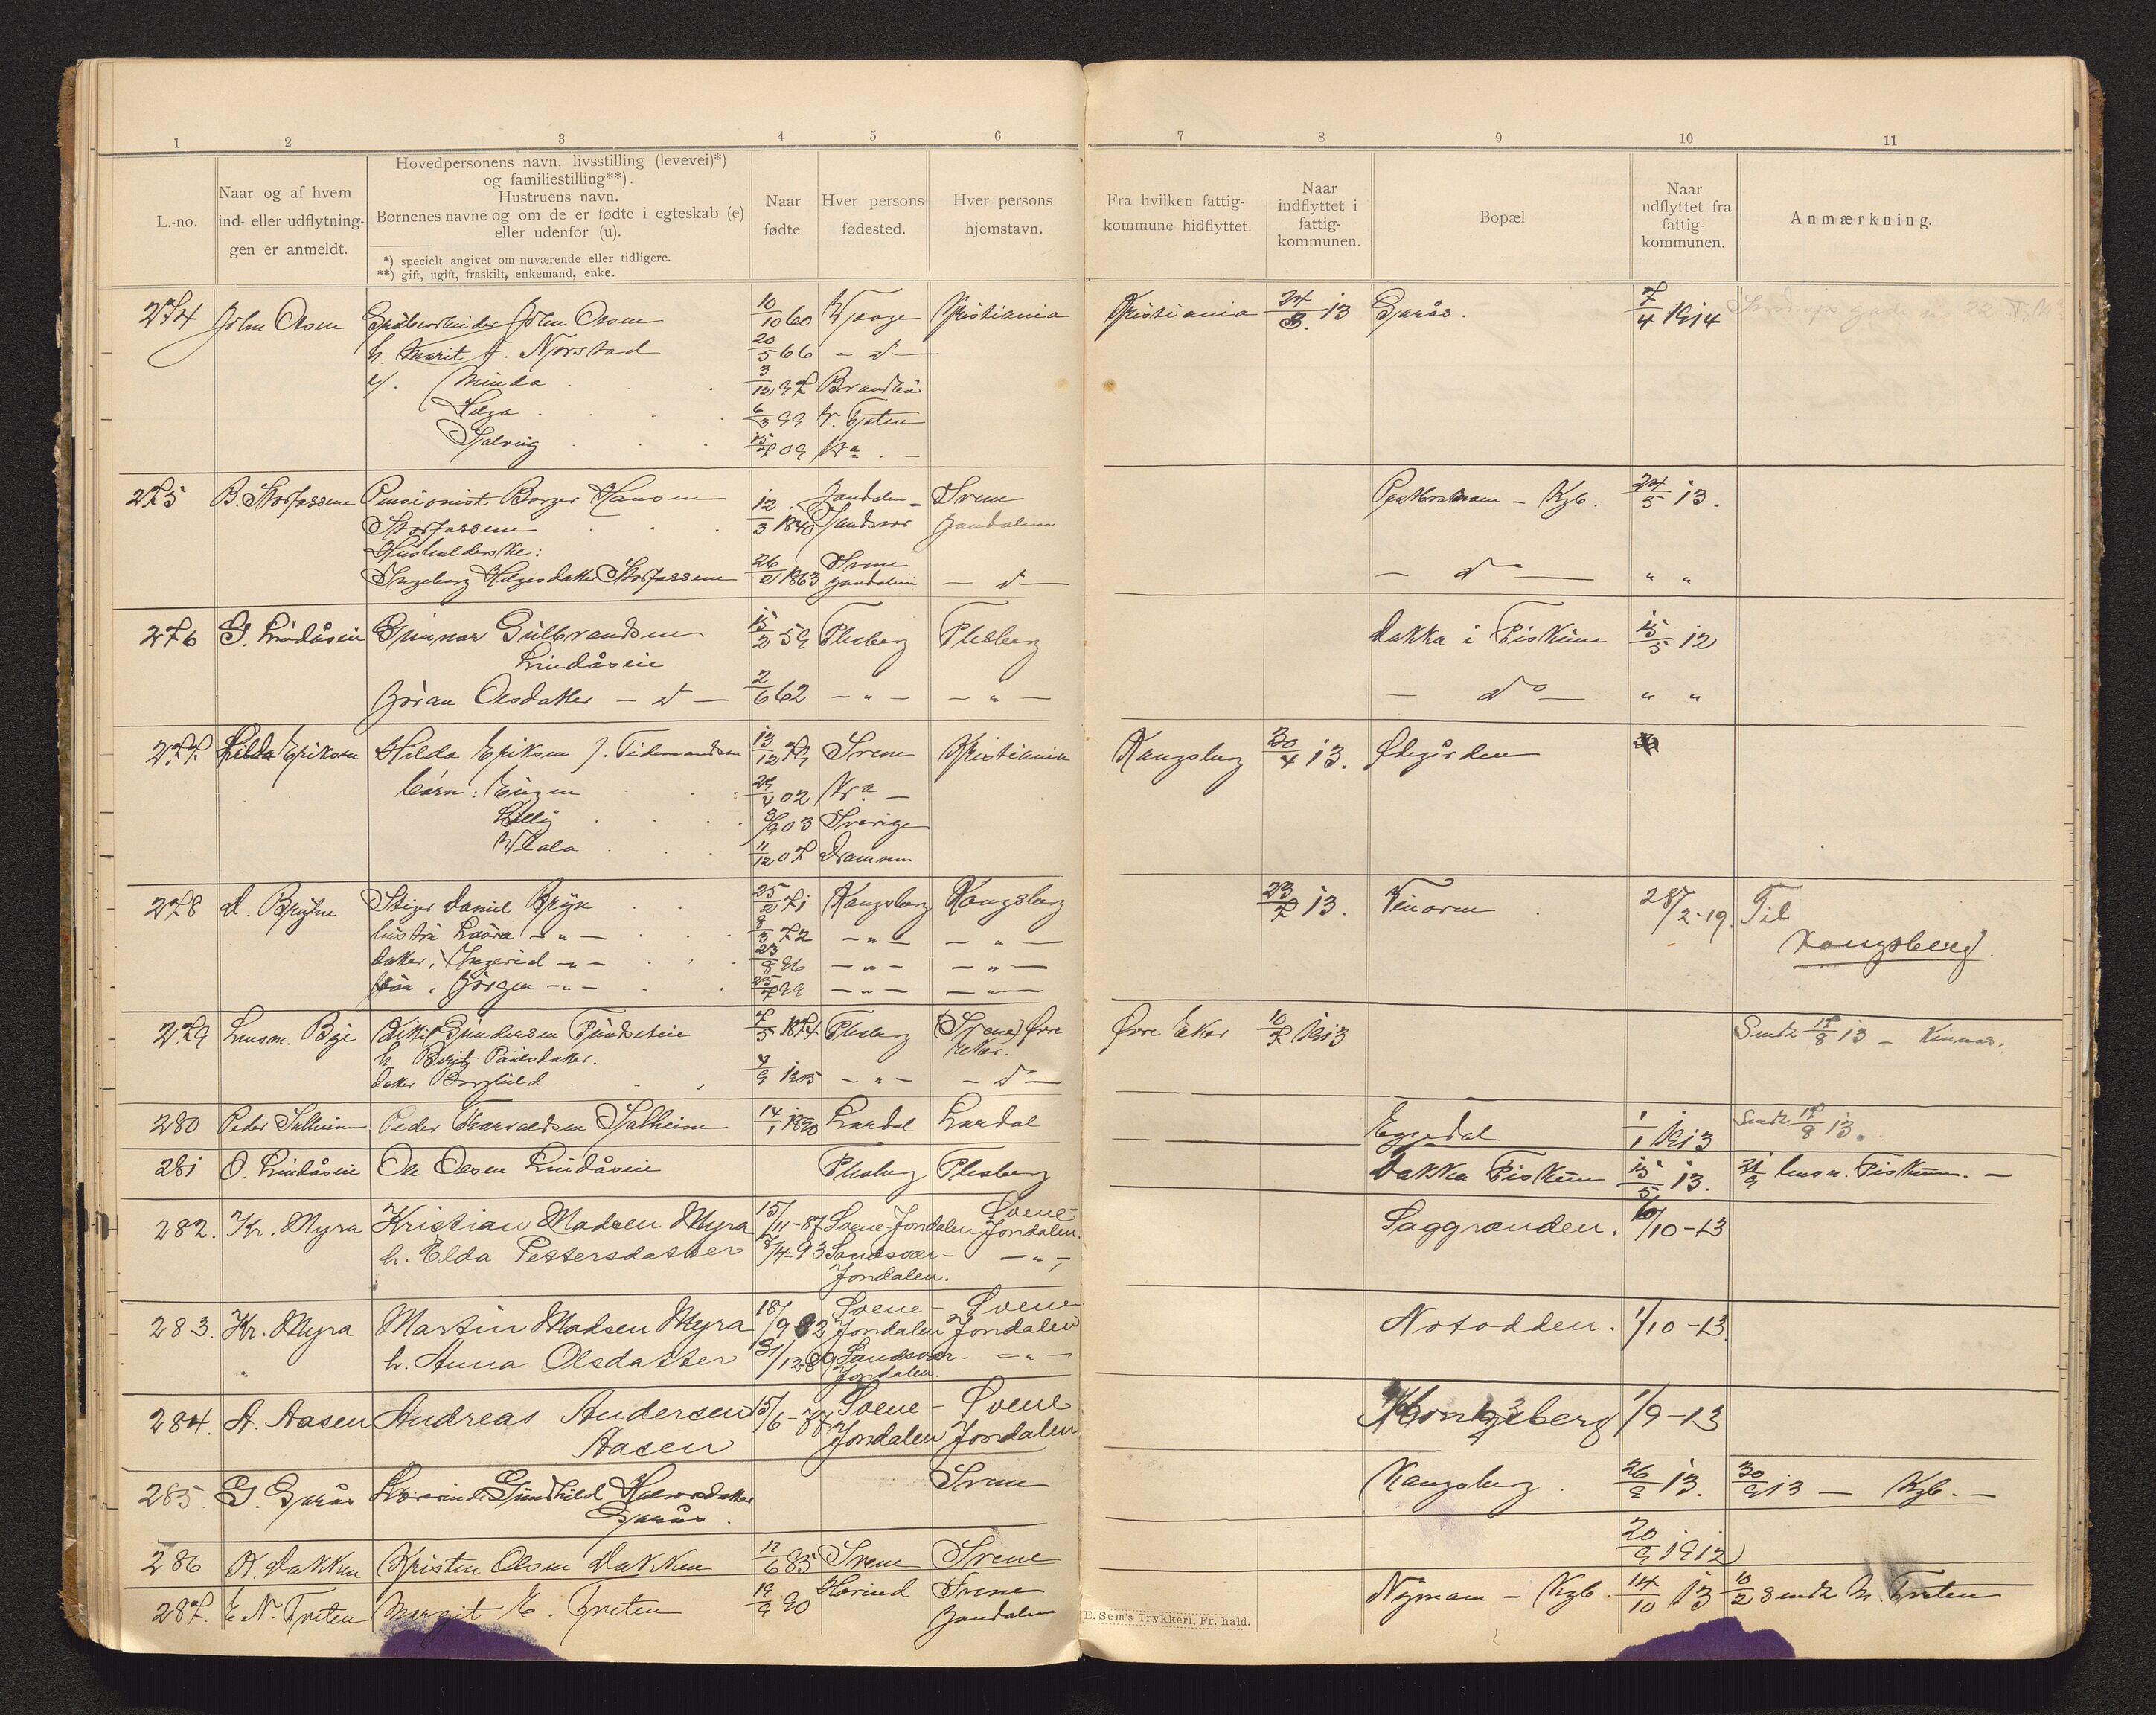 1 2 3 4 5 6 7 8 9 10 11
L.-no.
Naar og af hvem
ind- eller udflytnin-
gen er anmeldt.
Hovedpersonens navn, livsstilling (levevei)*)
og familiestilling**).
Hustruens navn.
Børnenes navne og om de er fødte i egteskab (e)
eller udenfor (u).
*) specielt angivet om nuværende eller tidligere.
**) gift, ugift, fraskilt, enkemand, enke.
Naar
fødte
Hver persons
fødested.
Hver persons
hjemstavn.
Fra hvilken fattig-
kommune hidflyttet.
Naar
indflyttet i
fattig-
kommunen.
Bopæl
Naar
udflyttet fra
fattig-
kommunen.
Anmærkning.
274 John Olsen John Olsen 10/10 60 Kristiania Kristiania 24/3. 13 7/4 1914
h. Marit J. Norstad 20/5 66 - d -
e/. Minda 3/12 97
Helga 6/3 99
Solveig 15/7 09 Kra. -
275 B. Storjassene Pensionist Borger Hansen 12/3 1840 Jondalen - Svene Kgb. 24/5 13.
Storjassene Sandsvær Jondalen
Husholderske:
Ingeborg Helgesdatter Storjassene 26/12 1863 Svene Jondalen - d - - do - " "
276 G. Lindåseie Gunnar Gulbrandsen 15/2 59 Flesberg Flesberg Dakka i Fiskum 15/5 12
Lindåseie
Jøran Olsdatter - d - 2/6 62 - " - - " - - do - " "
277. Hilda Eriksen Hilda Eriksen f. Tidemandsen 13/12 79 Svene Kristiania Kongsberg 30/4 13. Ødegården
børn: Eugen 29/4 02 Kra -
Lilly 9/9 03 Sverige
11/12 07 Drammen
278 D. Bryhn Stiger Daniel Bryn 25/12 71 Kongsberg Kongsberg 23/7 13. Vinoren 28/2-19. Til
Kongsberg.
hustru Laura - " - 8/3 72 - " - - " -
datter, Ingerid - " - 23/8 96 - " - - " -
søn, Jørgen - " - 25/7 99 - " - - " -
279 Lensm. Bye Gundersen 7/5 1874 Flesberg (Svene) Øvre Eker. Øvre Eker 10/7 1913 Sendt 17/8 13 -
h. Berit Paulsdatter.
datter Borghild 4/9 1905 - " - - do -
280 Peder Solheim Peder Torvaldsen Solheim 14/1 1890 Lardal Lardal Eggedal 1/1 1913 Sendt 17/8 13.
281 O. Lindåseie Ole Olsen Lindåseie Flesberg Flesberg Dakka Fiskum 15/5 13. 21/9 lensm. Fiskum. -
282. Kr. Myra Kristian Madsen Myra 15/11-87 Svene-Jondalen Svene-Jondalen. Saggrenden. 10/10-13
h. Elda Pettersdatter 7/4-93 Sandsvær-Jondalen. - " -
283. Kr. Myra Martin Madsen Myra 18/9 82 Svene-Jondalen Svene Jondalen Notodden. 1/10-13.
" h. Anna Olsdatter 31/12-89 Sandsvær-Jondalen. - " -
284. A. Aasen Andreas Andersen 15/6-87 Svene-Jondalen Svene Jondalen Kongsberg 1/9-13
Aasen
285. G. Gjerås Lærerinde Gunhild Halvorsdatter Svene Kongsberg 26/9 13. 30/9 13 - Kgb. -
Gjerås.
286 K. Dakken Kristen Olsen Dakken 12/6 85 Svene Svene 20/9 1912
287. E. N. Træten Margit E. Træten 19/9 90 Svene Jondalen Nymoen - Kgb. 14/10 13 10/2 sendt N. Træten
E. Sem's Trykkeri, Fr. hald.